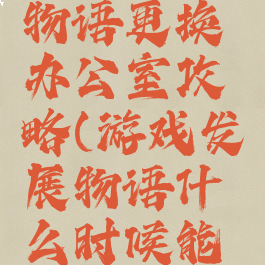 物语更换
办公室攻
略(游戏发
展物语什
么时候能